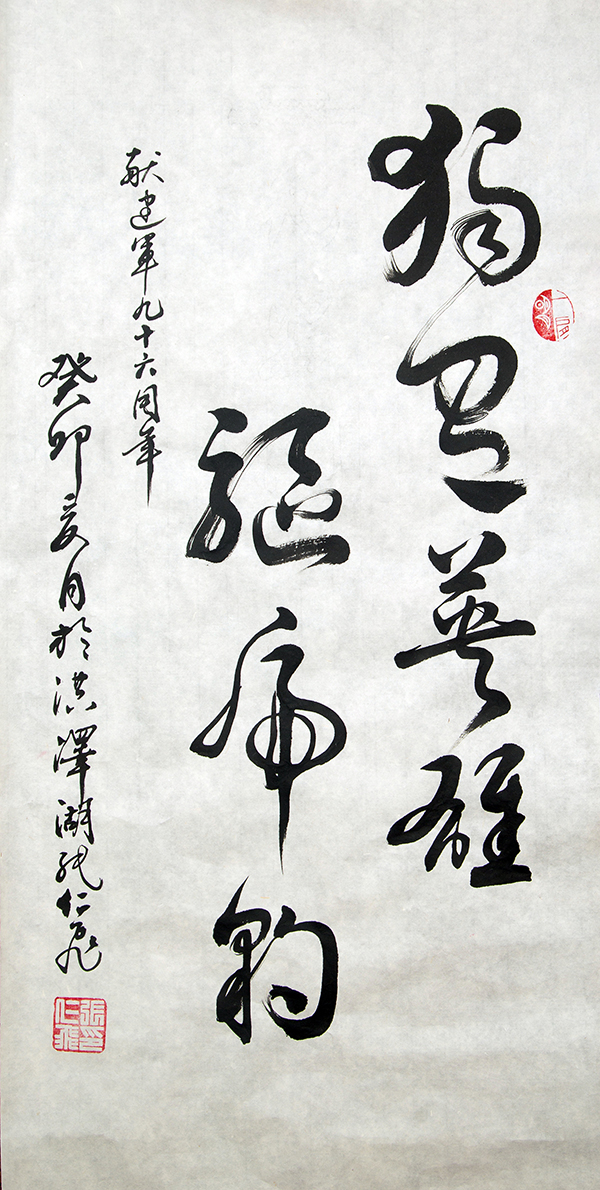 獨有英雄
驅虎豹
献建軍九十六周年
癸卯夏月於洪澤湖張仁飛
張印仁飛